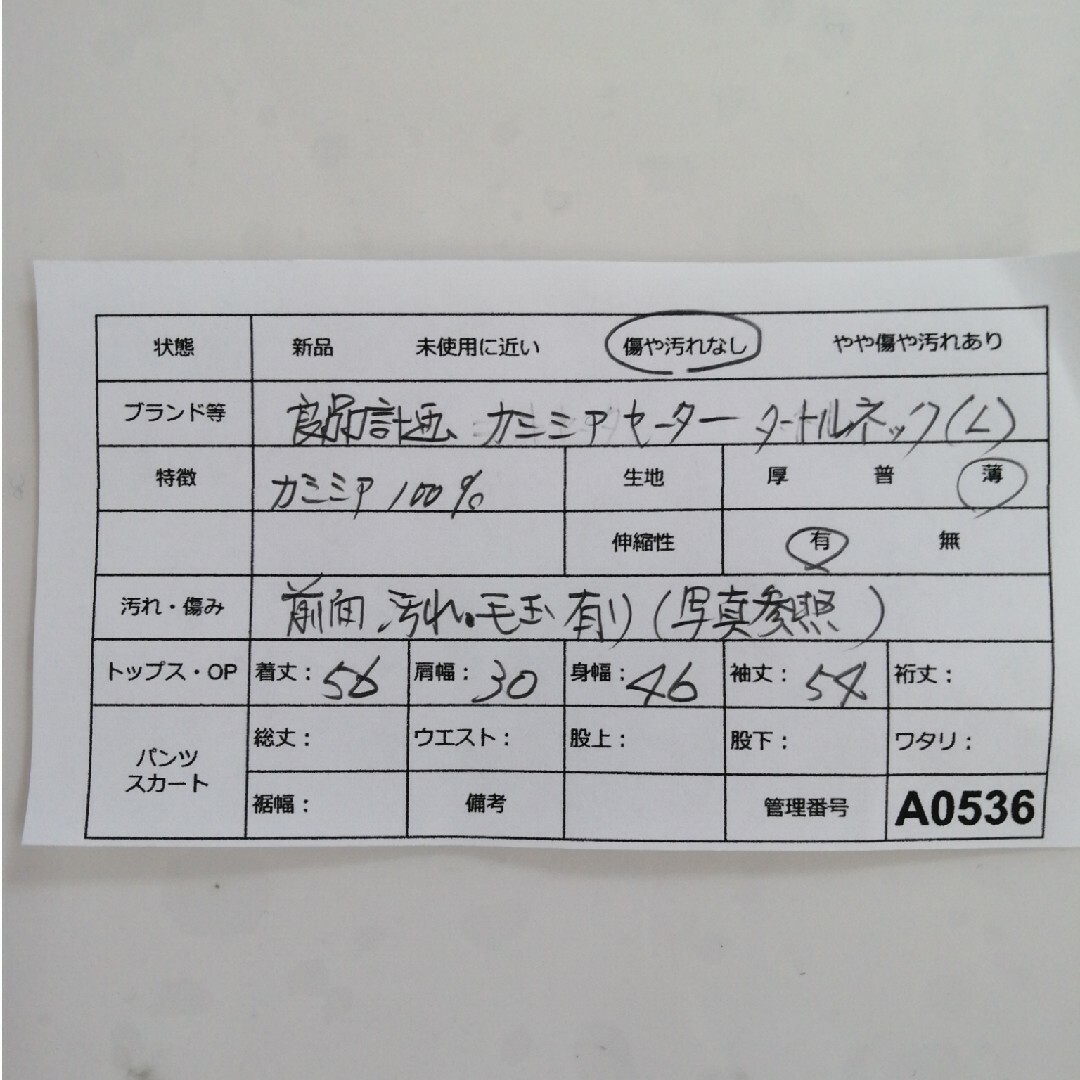 状態 新品 未使用に近い 傷や汚れなし やや傷や汚れあり
ブランド等 良品計画 カミミアセーター タートルネック(L)
特徴 カミミア100% 生地 厚 普 薄
伸縮性 有 無
汚れ・傷み 前面 汚れ・毛玉有り(写真参照)
トップス・OP 着丈: 56 肩幅: 30 身幅: 46 袖丈: 54 裄丈:
パンツ 総丈: ウエスト: 股上: 股下: ワタリ:
スカート
裾幅: 備考 管理番号 A0536